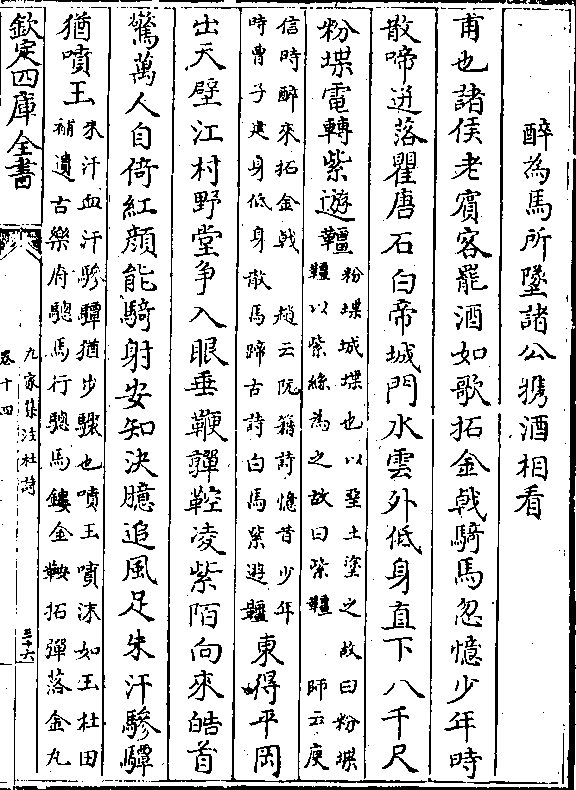 醉為馬所墜諸公擕酒相看
甫也諸侯老賓客罷酒如歌拓金戟騎馬忽憶少年時
散啼迸落瞿唐石白帝城門水雲外低身直下八千尺
粉堞電轉紫遊韁
粉堞城堞也以堊土塗之故曰粉堞
韁以紫絲為之故曰紫韁 師云庾
信時醉來拓金戟 趙云阮籍詩憶昔少年
時曹子建身低身散馬蹄古詩白馬紫遊韁
東得平岡
出天壁江村野堂争入眼垂鞭嚲鞚凌紫陌向來皓首
驚萬人自倚紅顔能騎射安知決臆追風足朱汗驂驔
猶噴王
朱汗血汗驂驔猶步驟也噴王噴沫如王杜田
補遺古樂府驄馬行驄馬鏤金鞍拓彈落金丸
欽定四庫全書
九家集注杜詩
卷十四
三十六